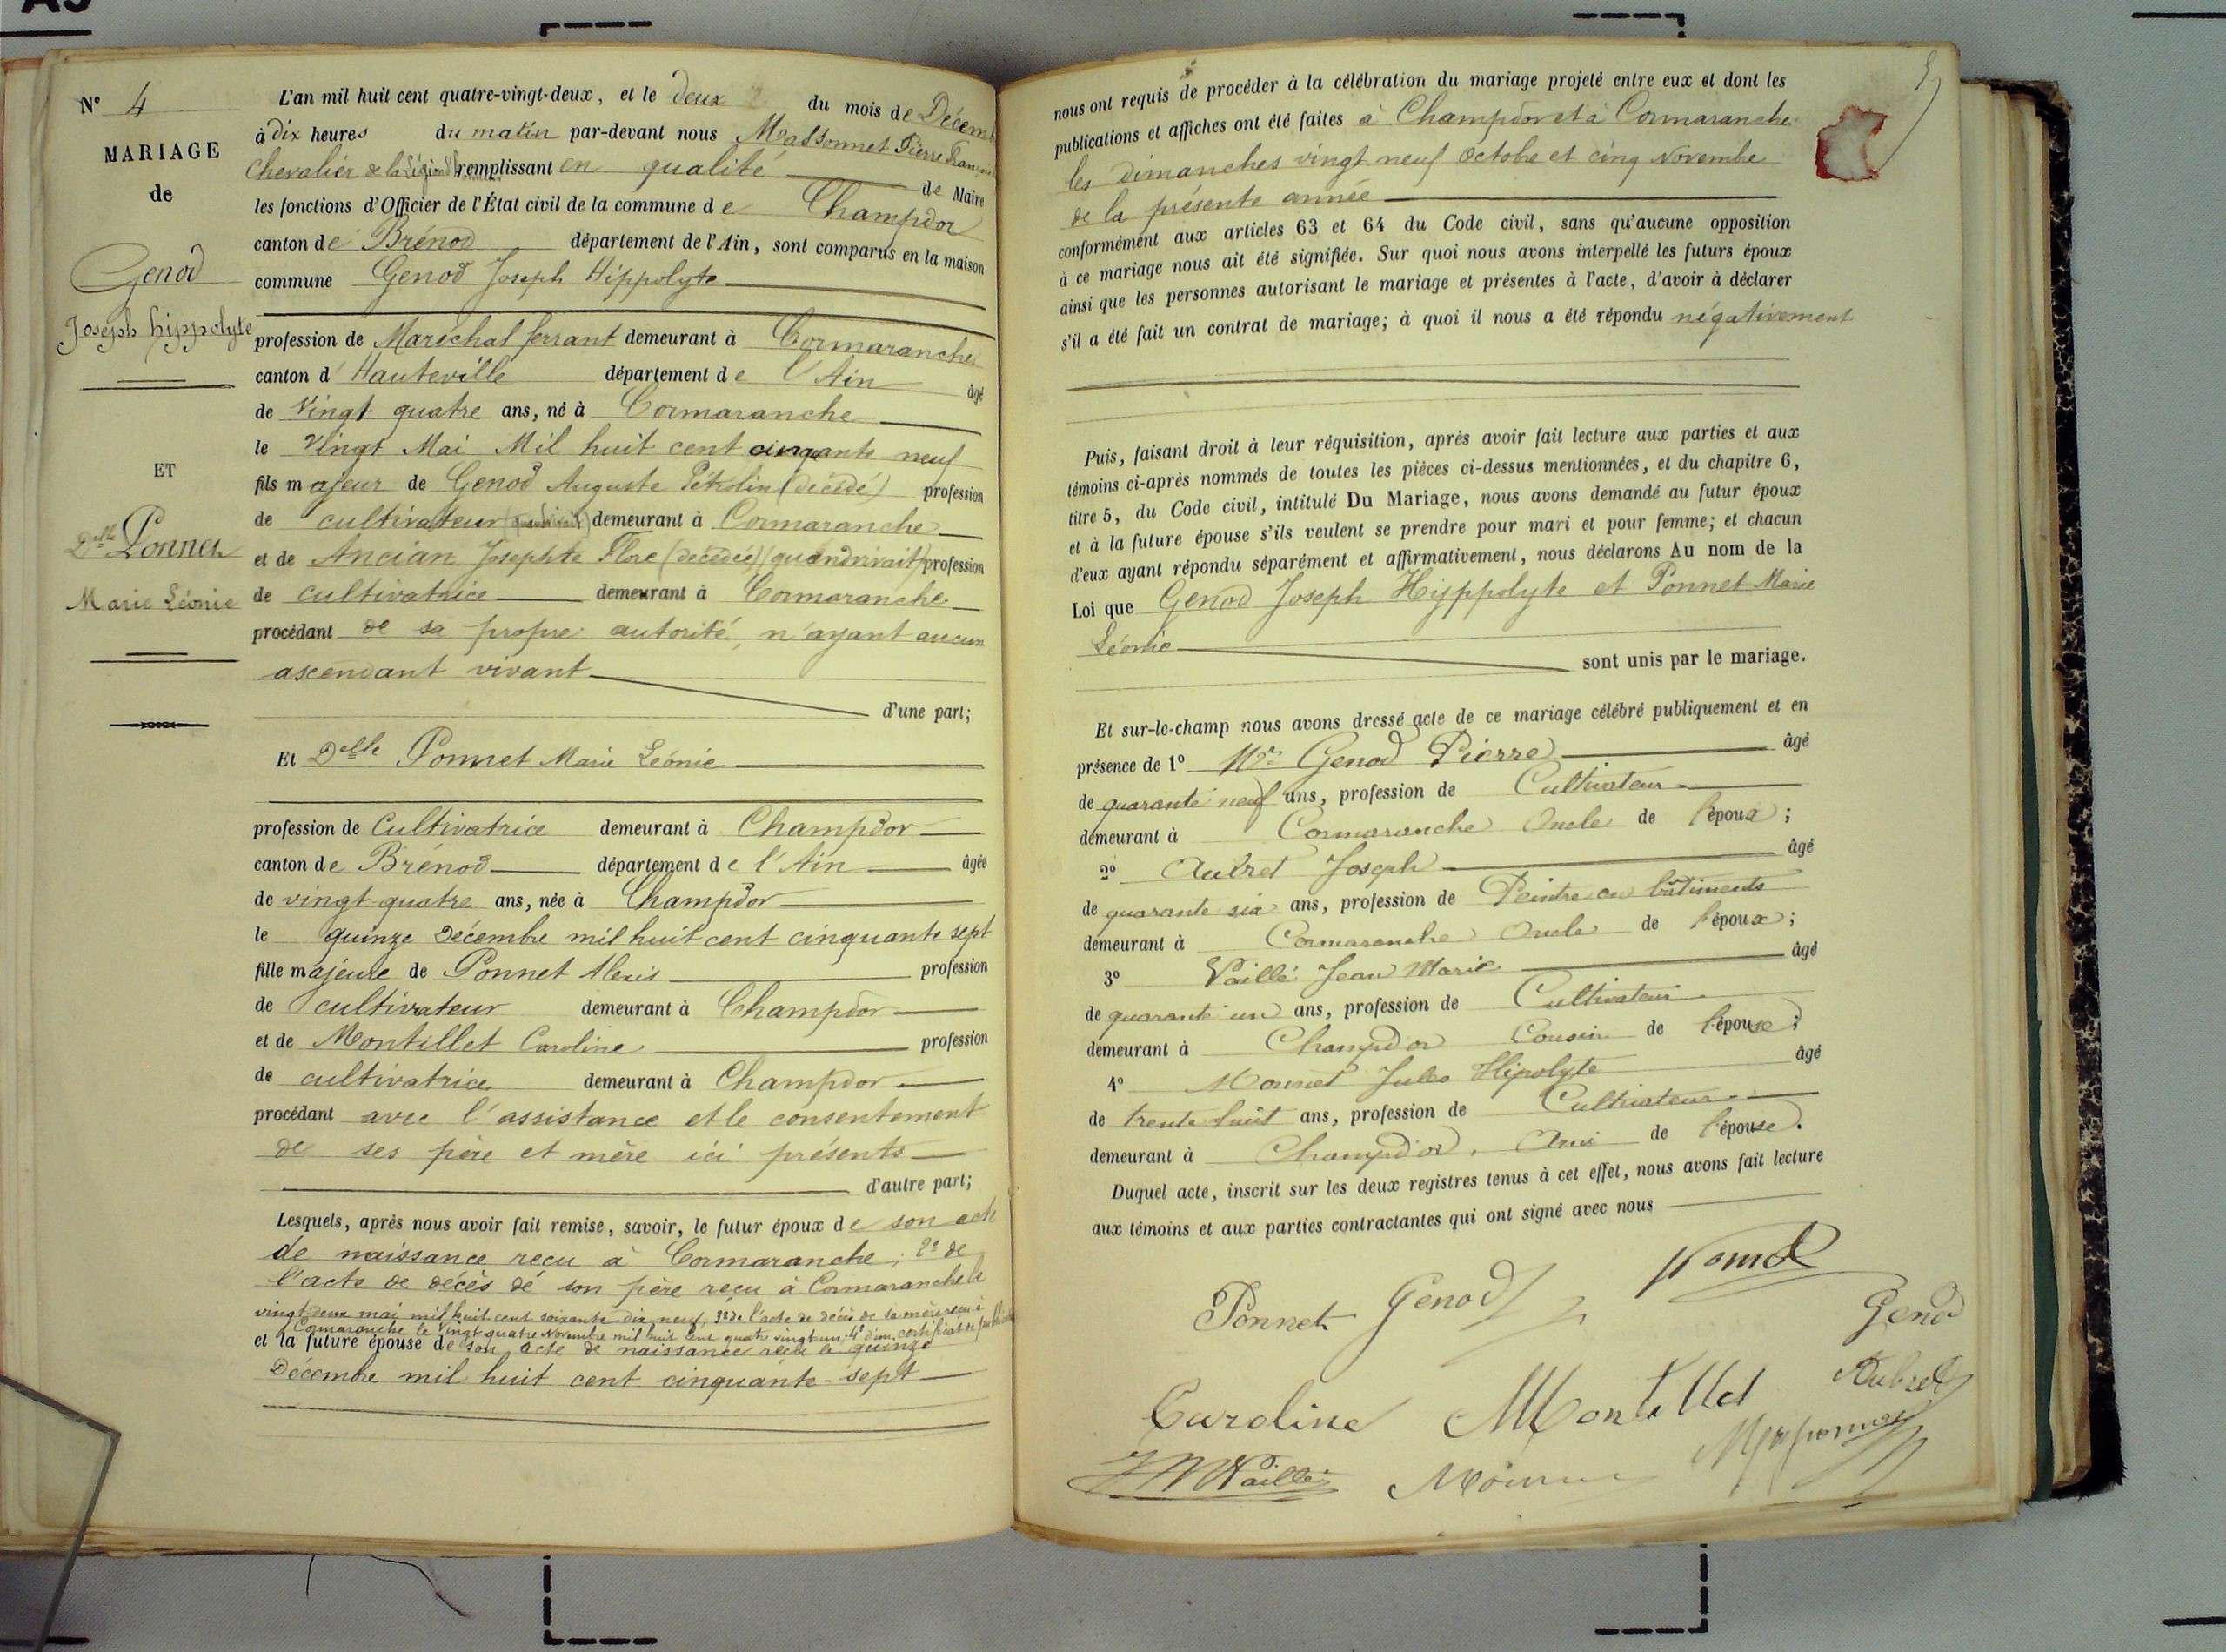 A3
N° 4
MARIAGE
de
Genod
Joseph hippolyte
ET
Delle Ponnet
Marie Léonie
L'an mil huit cent quatre-vingt-deux, et le deux du mois de Décemb
à dix heures du matin par-devant nous Massonnet Pierre François
Chevalier de la Légion d'h remplissant en qualité de Maire
les fonctions d'Officier de l'État civil de la commune de Champdor
canton de Brénod département de l'Ain, sont comparus en la maison
commune Genod Joseph Hippolyte
profession de Maréchal ferrant demeurant à Cormaranche
canton d'Hauteville département de l'Ain âgé
de Vingt quatre ans, né à Cormaranche
le Vingt Mai Mil huit cent cinquante neuf
fils majeur de Genod Auguste (décédé) profession
de cultivateur demeurant à Cormaranche
et de Ancian Josephte Flore (décédée) (quand vivait) profession
de cultivatrice demeurant à Cormaranche
procédant de sa propre autorité, n'ayant aucun
ascendant vivant
d'une part;
Et Delle Ponnet Marie Léonie
profession de Cultivatrice demeurant à Champdor
canton de Brénod département de l'Ain âgée
de vingt-quatre ans, née à Champdor
le quinze Décembre mil huit cent cinquante sept
fille majeure de Ponnet Alexis profession
de cultivateur demeurant à Champdor
et de Montillet Caroline profession
de cultivatrice demeurant à Champdor
procédant avec l'assistance et le consentement
de ses père et mère ici présents
d'autre part;
Lesquels, après nous avoir fait remise, savoir, le futur époux de son acte
de naissance reçu à Cormaranche; 2° de
l'acte de décès de son père reçu à Cormaranche le
vingt deux mai mil huit cent soixante dix neuf, 3° de l'acte de décès de sa mère reçu à
Cormaranche le Vingt quatre Novembre mil huit cent quatre vingt un; 4° d'un certificat de
et la future épouse de son acte de naissance reçu le quinze
Décembre mil huit cent cinquante-sept
nous ont requis de procéder à la célébration du mariage projeté entre eux et dont les
publications et affiches ont été faites à Champdor et à Cormaranche
les dimanches vingt neuf Octobre et cinq Novembre
de la présente année
conformément aux articles 63 et 64 du Code civil, sans qu'aucune opposition
à ce mariage nous ait été signifiée. Sur quoi nous avons interpellé les futurs époux
ainsi que les personnes autorisant le mariage et présentes à l'acte, d'avoir à déclarer
s'il a été fait un contrat de mariage; à quoi il nous a été répondu négativement
Puis, faisant droit à leur réquisition, après avoir fait lecture aux parties et aux
témoins ci-après nommés de toutes les pièces ci-dessus mentionnées, et du chapitre 6,
titre 5, du Code civil, intitulé Du Mariage, nous avons demandé au futur époux
et à la future épouse s'ils veulent se prendre pour mari et pour femme; et chacun
d'eux ayant répondu séparément et affirmativement, nous déclarons Au nom de la
Loi que Genod Joseph Hyppolyte et Ponnet Marie
Léonie
sont unis par le mariage.
Et sur-le-champ nous avons dressé acte de ce mariage célébré publiquement et en
présence de 1° Mr Genod Pierre âgé
de quarante neuf ans, profession de Cultivateur
demeurant à Cormaranche Oncle de l'époux;
2° Aubret Joseph âgé
de quarante six ans, profession de Peintre en bâtiments
demeurant à Cormaranche Oncle de l'époux;
3° Vaillé Jean Marie âgé
de quarante un ans, profession de Cultivateur
demeurant à Champdor Cousin de l'épouse;
4° Mounet Jules Hipolyte âgé
de trente huit ans, profession de Cultivateur
demeurant à Champdor, Ami de l'épouse.
Duquel acte, inscrit sur les deux registres tenus à cet effet, nous avons fait lecture
aux témoins et aux parties contractantes qui ont signé avec nous
Ponnet Genod
Genod
Caroline Montillet Aubret
JM Vaillé